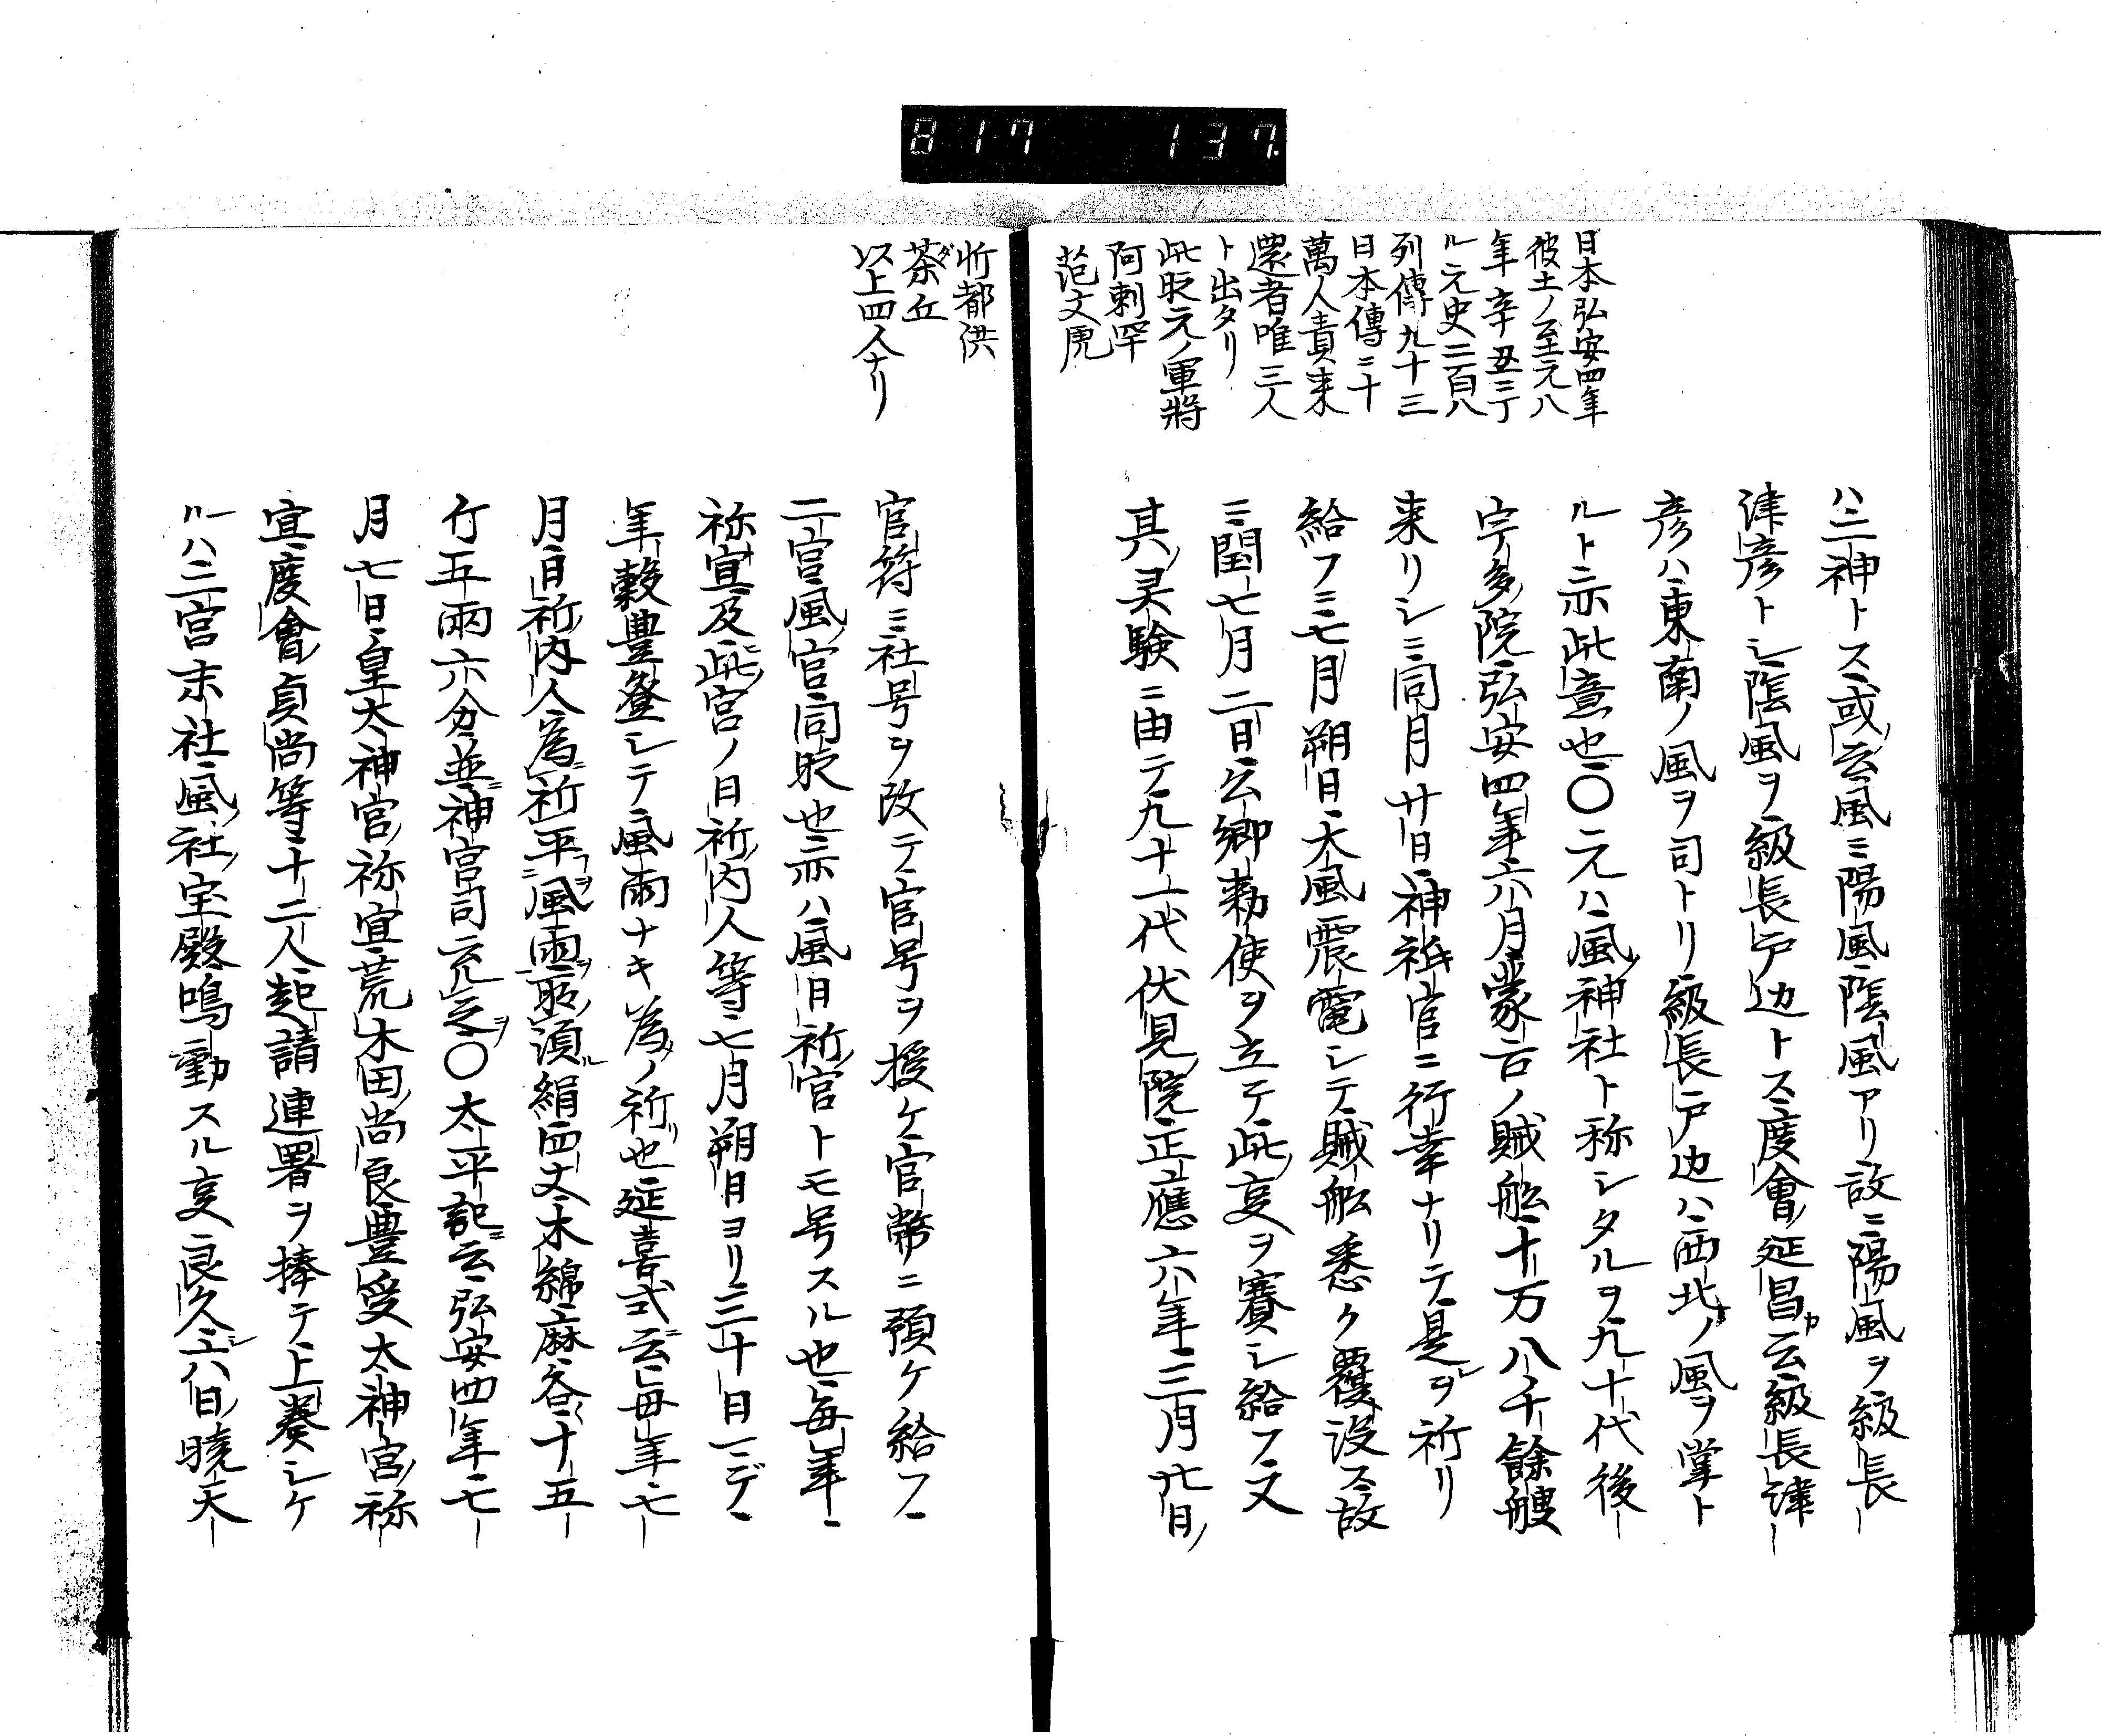 817 137.
日本弘安四年
彼土ノ至元八
年辛丑ニ丁
ル元史二百八
列傳九十三
日本傳ニ十
萬人責来
還者唯三人
ト出タリ
此時元ノ軍將
阿剌罕
范文虎
ハ二神トス或云風ニ陽風陰風アリ故ニ陽風ヲ級長
津彦トシ陰風ヲ級長戸辺トス度會延昌カ云級長津
彦ハ東南ノ風ヲ司トリ級長戸辺ハ西北ノ風ヲ掌ト
ルト亦此意也〇元ハ風神社ト称シタルヲ九十代後
宇多院弘安四年六月蒙古ノ賊舩十万八千餘艘
来リシニ同月廿日神祇官ニ行幸ナリテ是ヲ祈リ
給フニ七月朔日大風震電シテ賊舩悉ク覆没ス故
ニ閏七月二日公卿勅使ヲ立テ此事ヲ賽シ給フ又
其灵験ニ由テ九十一代伏見院正應六年三月廿日
忻都洪
茶丘
以上四人ナリ
官符ニ社号ヲ改テ宮号ヲ授ケ官幣ニ預ケ給フ
二宮風宮同时也亦ハ風日祈宮トモ号スル也毎年
祢宜及此宮ノ日祈内人等七月朔日ヨリ三十日マデ
年穀豊登シテ風雨ナキ為ノ祈也延喜式云毎年七
月日祈内人為祈平風雨所須絹四丈木綿麻各十五
斤五兩六分並神宮司充之〇太平記云弘安四年七
月七日皇大神宮祢宜荒木田尚良豊受太神宮祢
宜度會貞尚等十二人起請連署ヲ捧テ上奏シケ
ルハ二宮末社風社宝殿鳴動スル事良久シ六日暁天